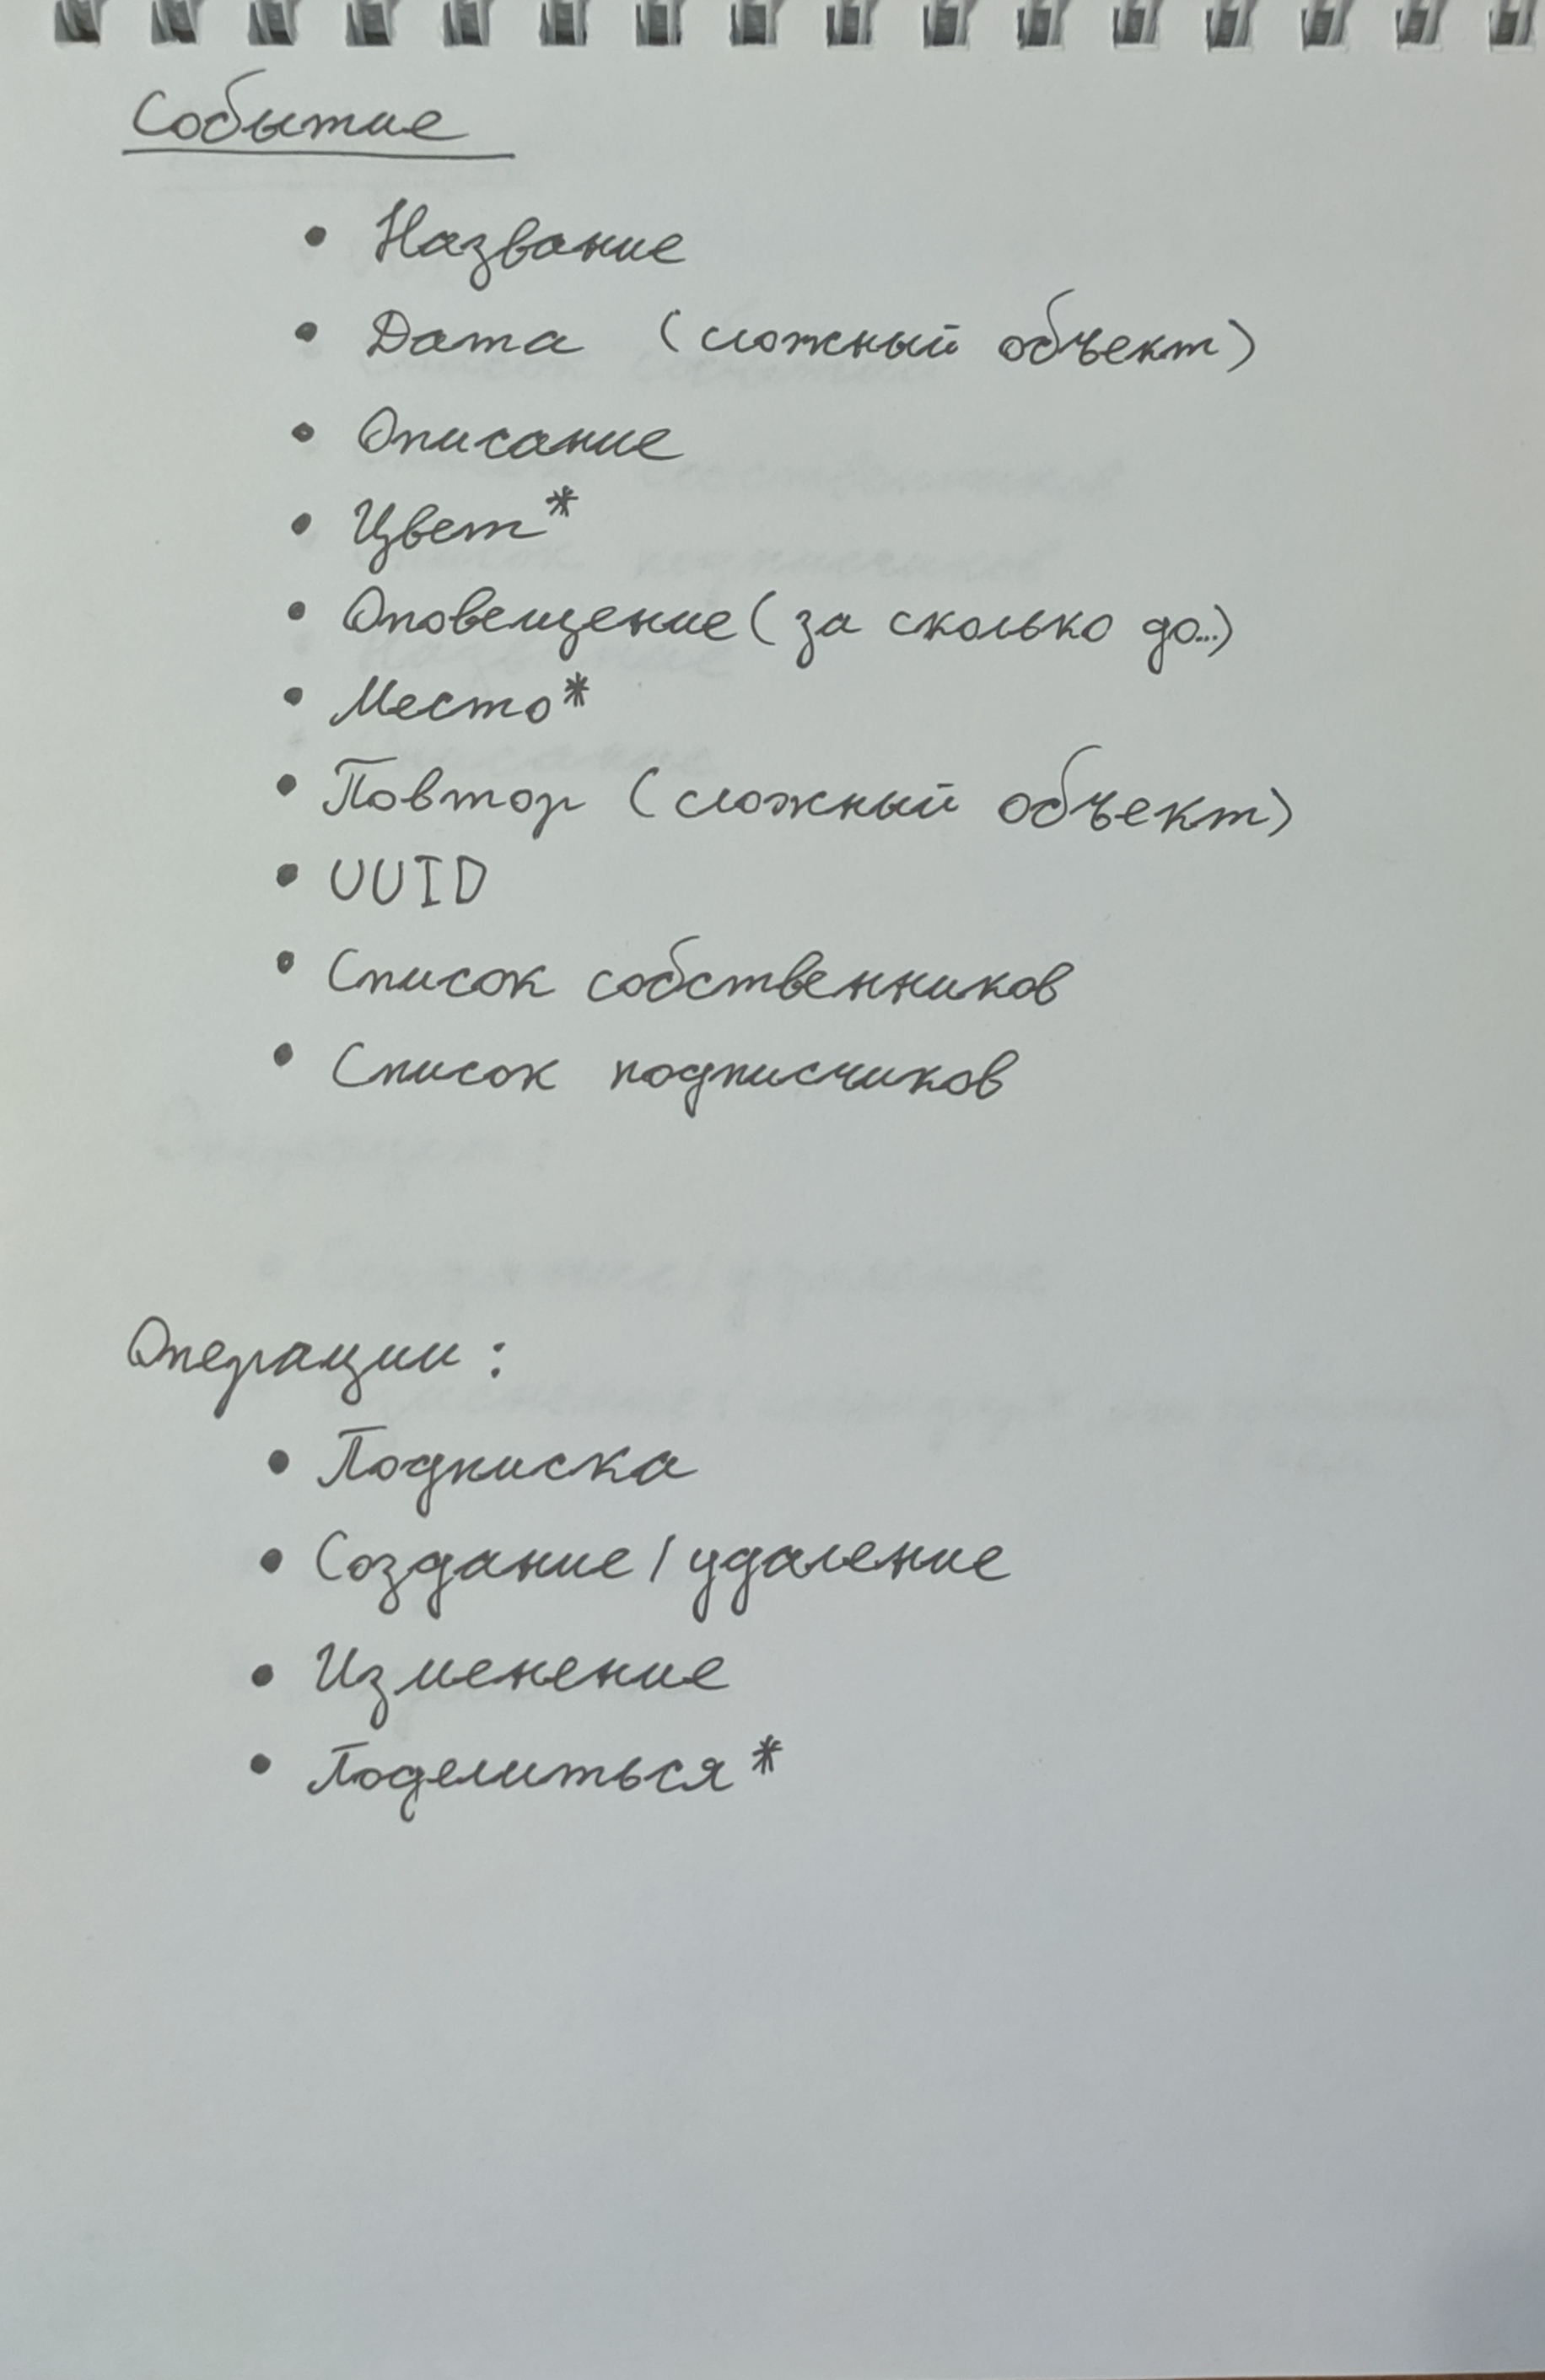 Событие
• Название
• Дата (сложный объект)
• Описание
• Цвет*
• Оповещение (за сколько до...)
• Место*
• Повтор (сложный объект)
• UUID
• Список собственников
• Список подписчиков
Операции:
• Подписка
• Создание/удаление
• Изменение
• Поделиться*